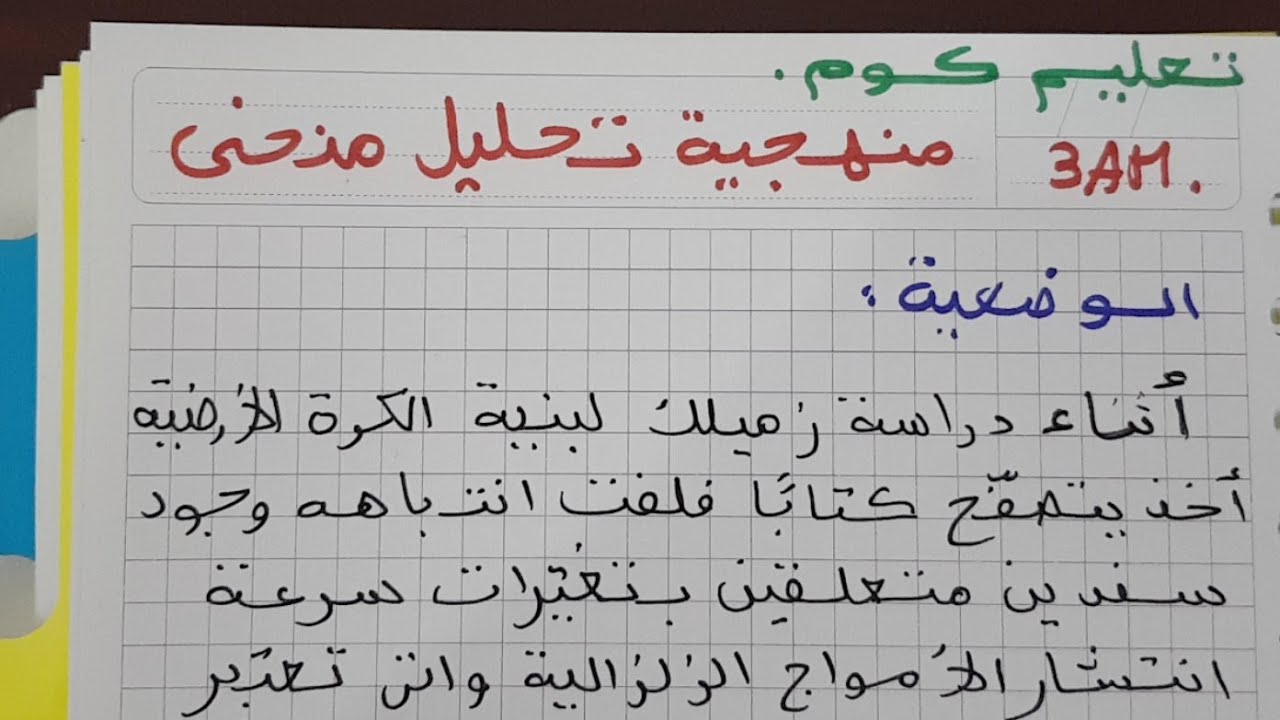 تعليم كوم.
3AM.
منهجية تحليل منحنى
الوضعية:
أثناء دراسة زميلك لبنية الكرة الأرضية
أخذ يتصفّح كتابًا فلفت انتباهه وجود
سندين متعلقين بتغيّرات سرعة
انتشار الأمواج الزلزالية والتي تعتبر